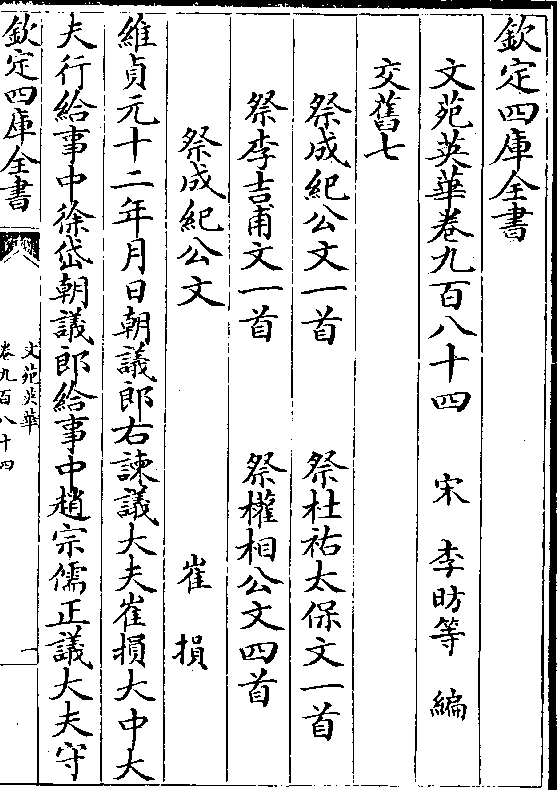 欽定四庫全書
文苑英華卷九百八十四　宋　李昉等　編
交舊七
祭成紀公文一首　祭杜祐太保文一首
祭李吉甫文一首　祭權相公文四首
祭成紀公文　崔損
維貞元十二年月日朝議郎右諫議大夫崔損大中大
夫行給事中徐岱朝議郎給事中趙宗儒正議大夫守
欽定四庫全書
文苑英華
卷九百八十四
一